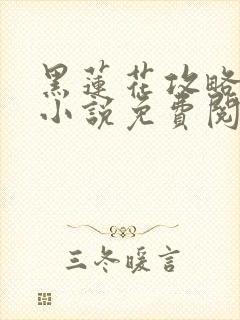 黑莲花攻略
小說免費閱
三冬暖言